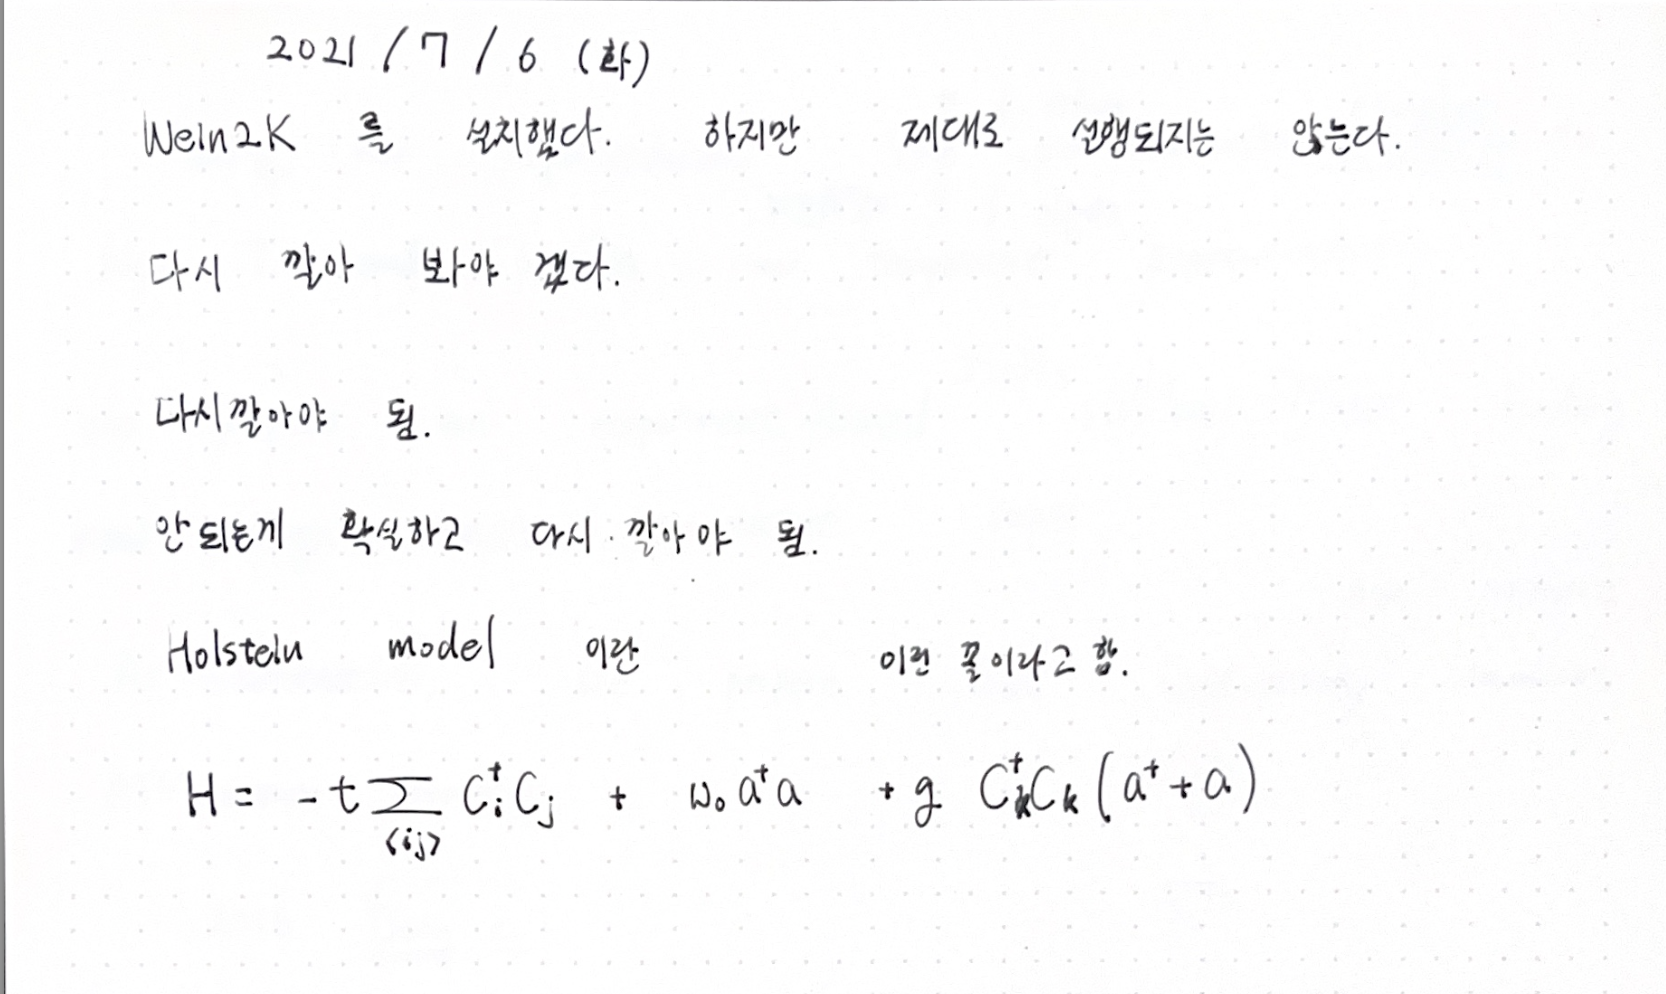 2021 / 7 / 6 (화)
Wein2K 를 설치했다. 하지만 제대로 실행되지는 않는다.
다시 깔아 봐야 겠다.
다시깔아야 됨.
안되는게 확실하고 다시 깔아야 됨.
Holstein model 이란 이런 꼴이라고 함.
H = -t∑_{<ij>} C_i^† C_j + ω_0 a^† a + g C_k^† C_k (a^† + a)